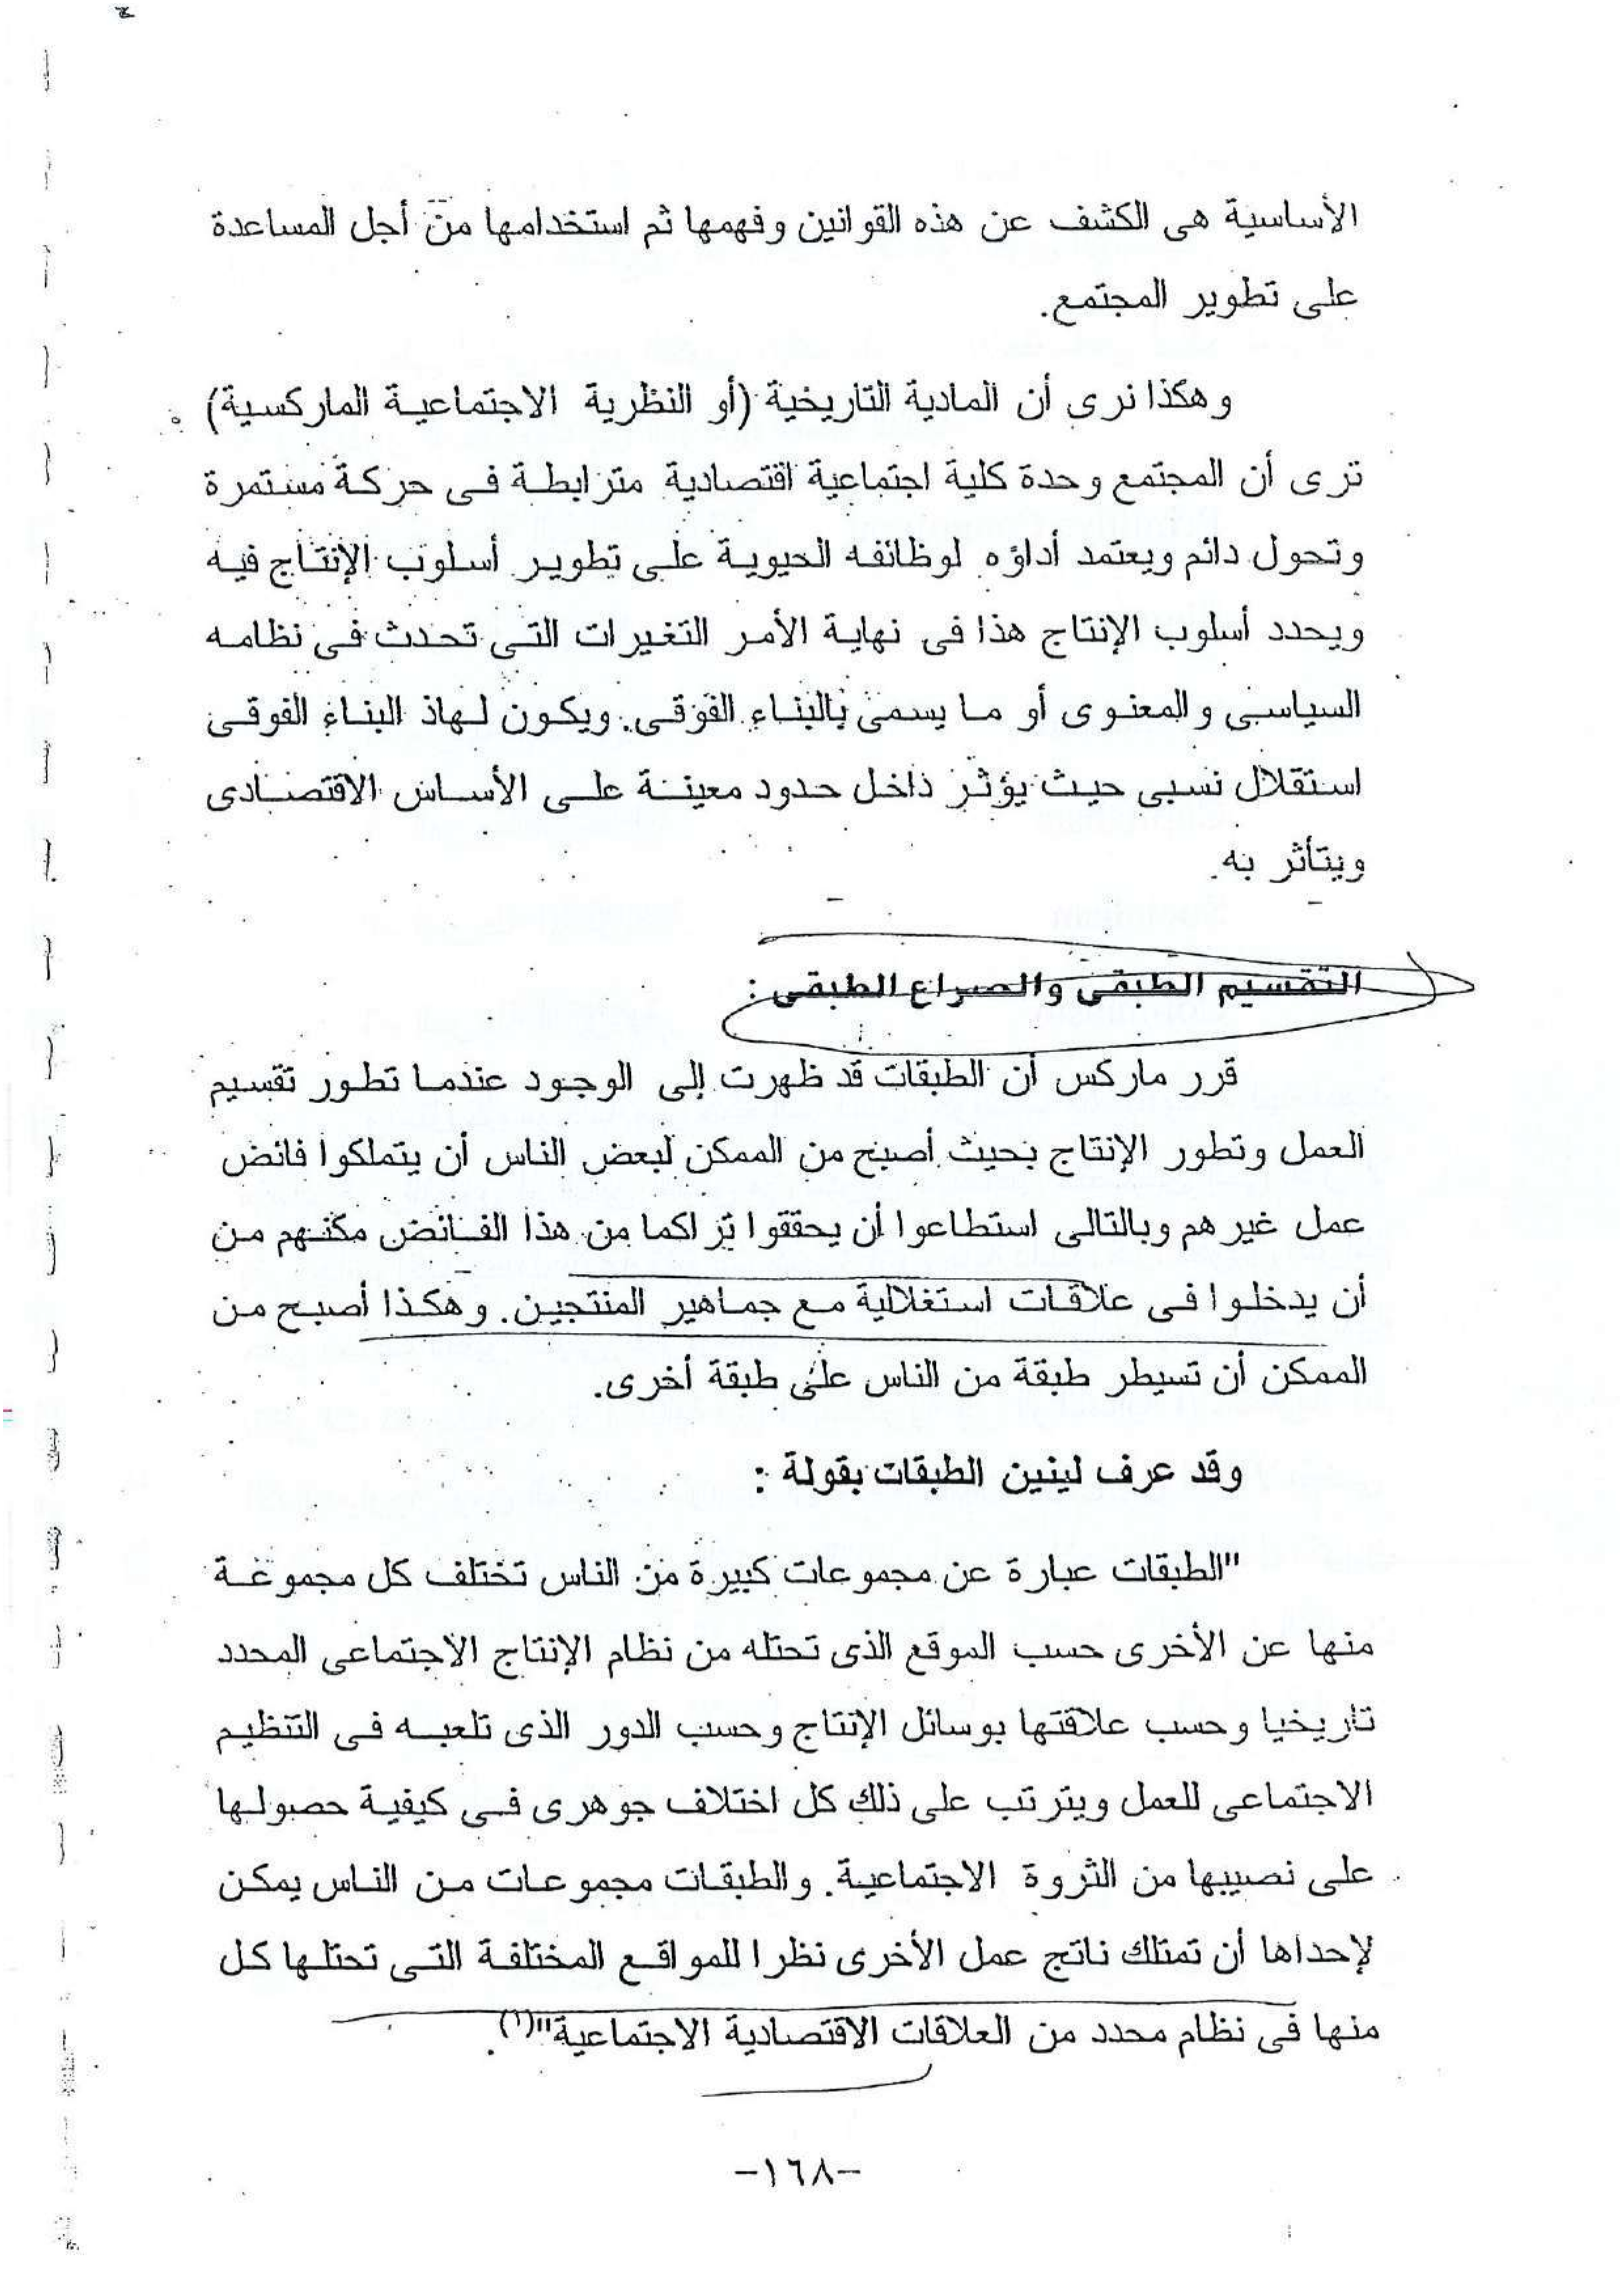 الأساسية هى الكشف عن هذه القوانين وفهمها ثم استخدامها من أجل المساعدة
على تطوير المجتمع.
وهكذا نرى أن المادية التاريخية (أو النظرية الاجتماعية الماركسية)
ترى أن المجتمع وحدة كلية اجتماعية اقتصادية مترابطة فى حركة مستمرة
وتحول دائم ويعتمد أداؤه لوظائفه الحيوية على تطوير أسلوب الإنتاج فيه
ويحدد أسلوب الإنتاج هذا فى نهاية الأمر التغيرات التى تحدث فى نظامه
السياسى والمعنوى أو ما يسمى بالبناء الفوقى. ويكون لهاذ البناء الفوقى
استقلال نسبى حيث يؤثر داخل حدود معينة على الأساس الاقتصادى
ويتأثر به.
التقسيم الطبقى والصراع الطبقى :
قرر ماركس أن الطبقات قد ظهرت إلى الوجود عندما تطور تقسيم
العمل وتطور الإنتاج بحيث أصبح من الممكن لبعض الناس أن يتملكوا فائض
عمل غيرهم وبالتالى استطاعوا أن يحققوا تراكما من هذا الفائض مكنهم من
أن يدخلوا فى علاقات استغلالية مع جماهير المنتجين. وهكذا أصبح من
الممكن أن تسيطر طبقة من الناس على طبقة أخرى.
وقد عرف لينين الطبقات بقولة :
"الطبقات عبارة عن مجموعات كبيرة من الناس تختلف كل مجموعة
منها عن الأخرى حسب الموقع الذى تحتله من نظام الإنتاج الاجتماعى المحدد
تاريخيا وحسب علاقتها بوسائل الإنتاج وحسب الدور الذى تلعبه فى التنظيم
الاجتماعى للعمل ويترتب على ذلك كل اختلاف جوهرى فى كيفية حصولها
على نصيبها من الثروة الاجتماعية. والطبقات مجموعات من الناس يمكن
لإحداها أن تمتلك ناتج عمل الأخرى نظرا للمواقع المختلفة التى تحتلها كل
منها فى نظام محدد من العلاقات الاقتصادية الاجتماعية"(١).
-١٦٨-